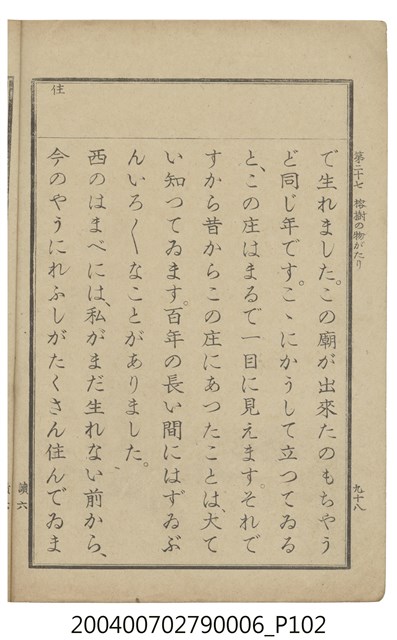 第二十七 榕樹の物がたり 九十八
で生れました。この廟が出來たのもちやう
ど同じ年です。こゝにかうして立つてゐる
と、この庄はまるで一目に見えます。それで
すから昔からこの庄にあつたことは、大て
い知つてゐます。百年の長い間にはずゐぶ
んいろ〱なことがありました。
西のはまべには、私がまだ生れない前から、
今のやうにれふしがたくさん住んでゐま
住
讀六
200400702790006_P102